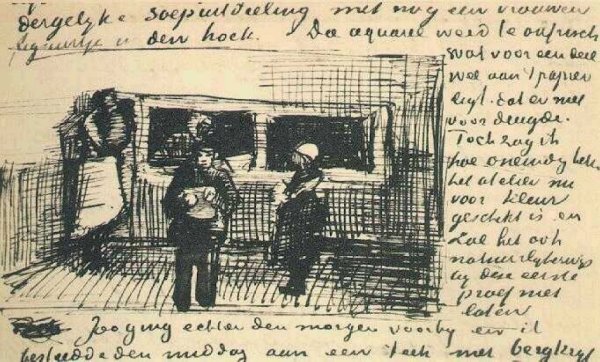 dergelyke soepuitdeeling met nog een vrouwen
figuurtje in den hoek. Die aquarel werd te
wat voor een deel
wel aan 't papier
ligt. dat er niet
voor deugde.
Toch zag ik
hoe oneindig beter
het atelier nu
voor kleur
geschikt is en
zal het ook
natuurlyk
by deze eerste
proef niet
laten
Zoo ging echter den morgen voorby en ik
besteedde den middag aan een teek met bergkryt